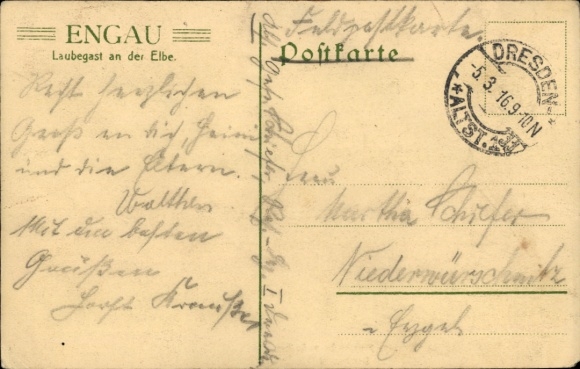 ENGAU
Laubegast an der Elbe.
Feldpostkarte.
Postkarte
DRESDEN
-5.3.16.9-10N
*ALTST.
Recht herzlichen
Gruß an dich, Heini
und die Eltern.
Walther
Mit den besten
Grüßen
Horst
Frau
Martha Schiefer
Niederwürschnitz
Erzgeb